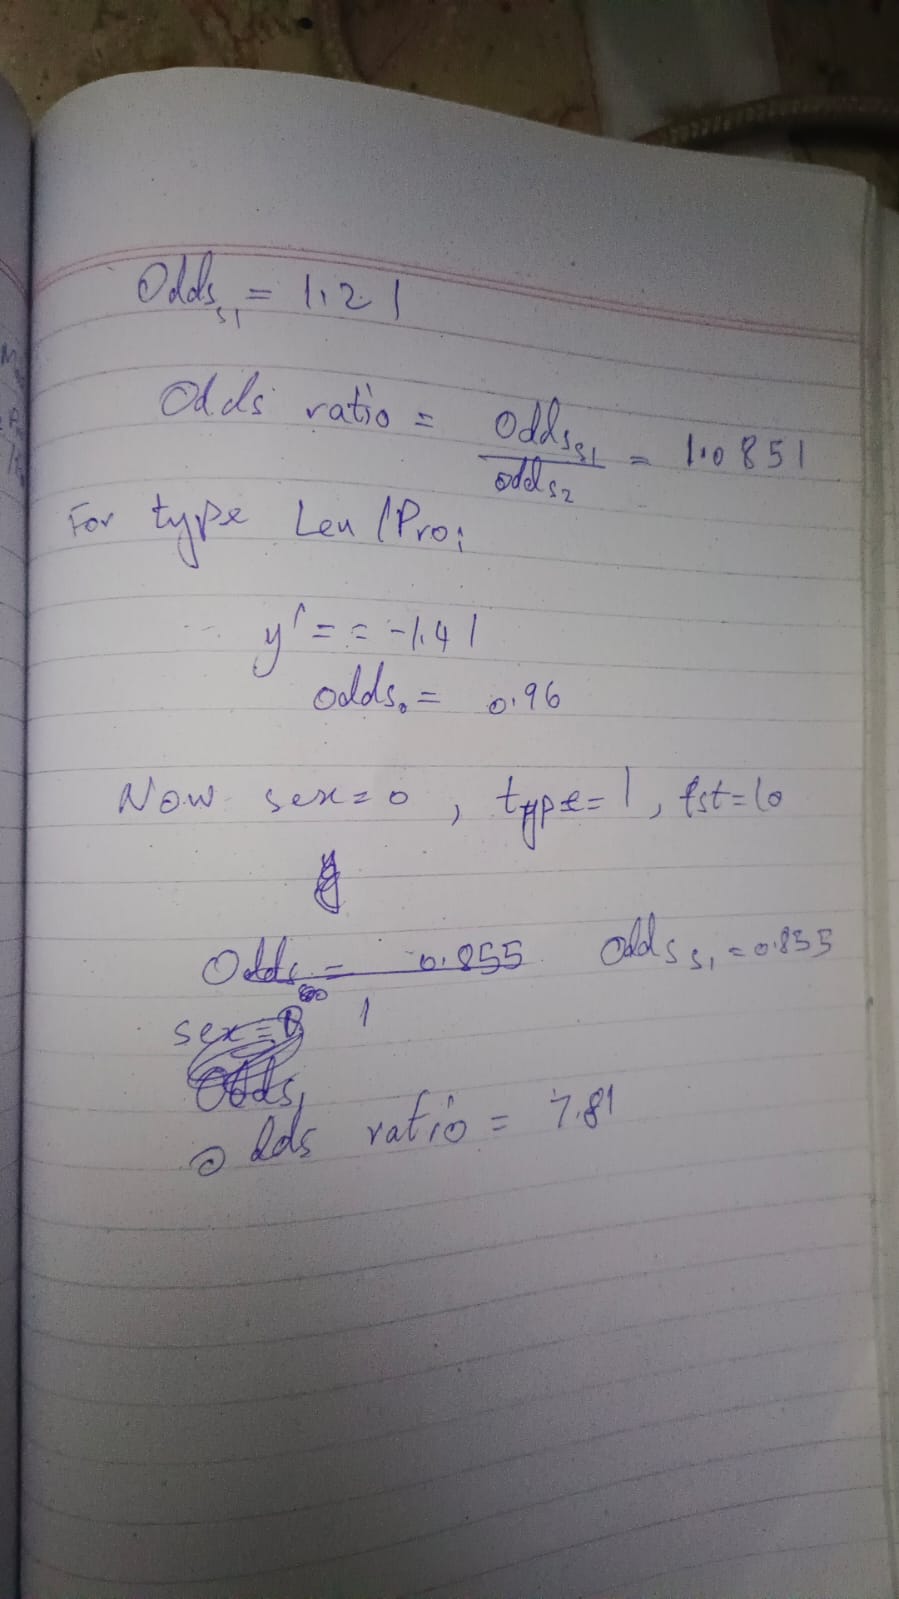 Odds_s1 = 1.21
Odds ratio = odds_s1 / odds_s2 = 1.0851
For type Len / Pro:
y' = = -1.41
odds_0 = 0.96
Now sex = 0, type = 1, fst = 10
Odds = 0.855 Odds_s1 = 0.855
sex = 1
Odds
odds ratio = 7.81